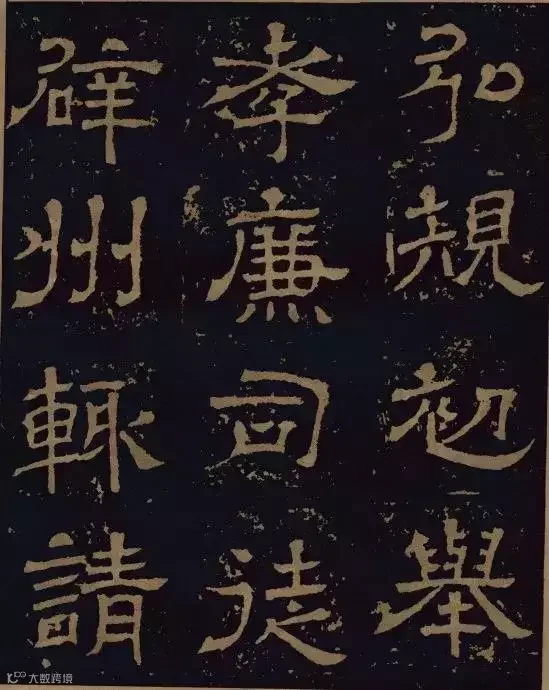 弘規初舉
孝廉司徒
辟州輒請
大数跨境